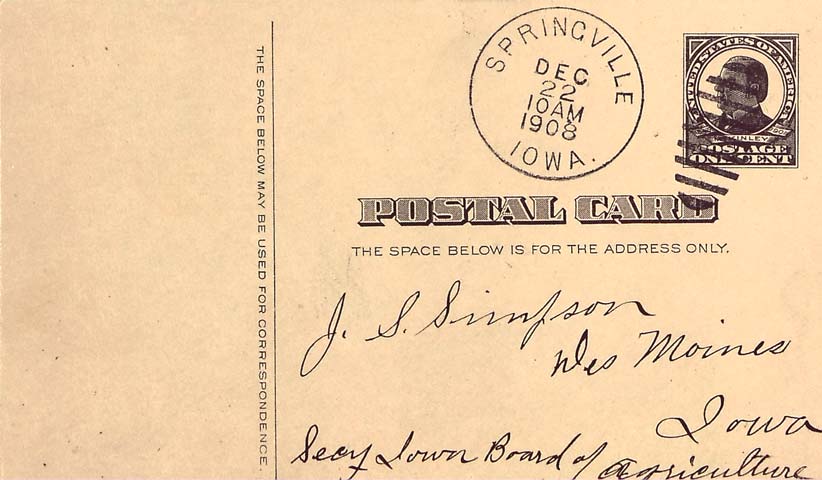 SPRINGVILLE
DEC
22
10AM
1908
IOWA.
UNITED STATES OF AMERICA
McKINLEY
POSTAGE
ONE CENT
POSTAL CARD
THE SPACE BELOW IS FOR THE ADDRESS ONLY.
THE SPACE BELOW MAY BE USED FOR CORRESPONDENCE.
J. S. Simpson
Des Moines
Iowa
Secy Iowa Board of Agriculture